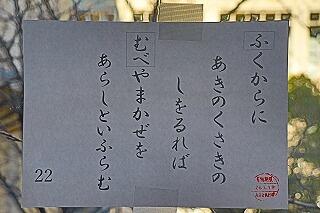 ふくからに
あきのくさきの
しをるれば
むべやまかぜを
あらしといふらむ
22